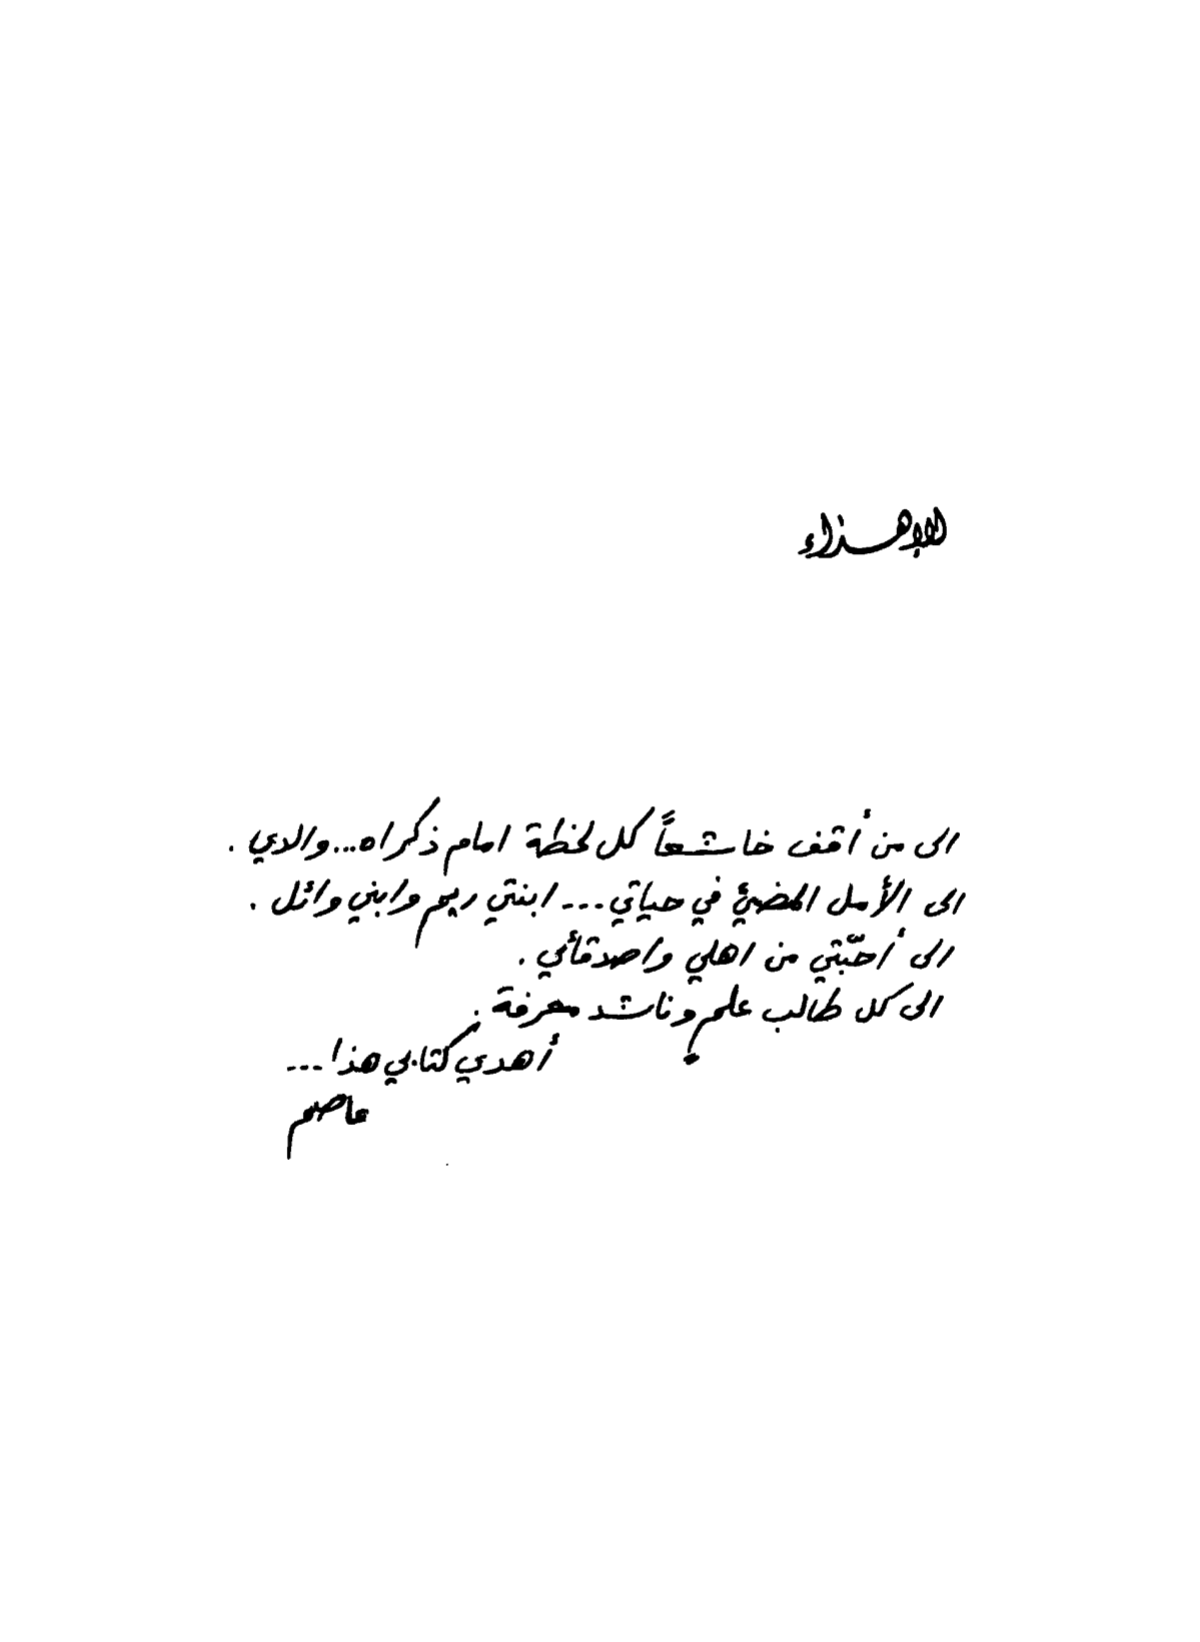 الإهداء
الى من أقف خاشعاً كل لحظة امام ذكراه... والدي .
الى الأمل المضيئ في حياتي... ابنتي ريم وابني وائل .
الى أحبّتي من اهلي واصدقأي .
الى كل طالب علم وناشد معرفة .
أهدي كتابي هذا ...
عاصم